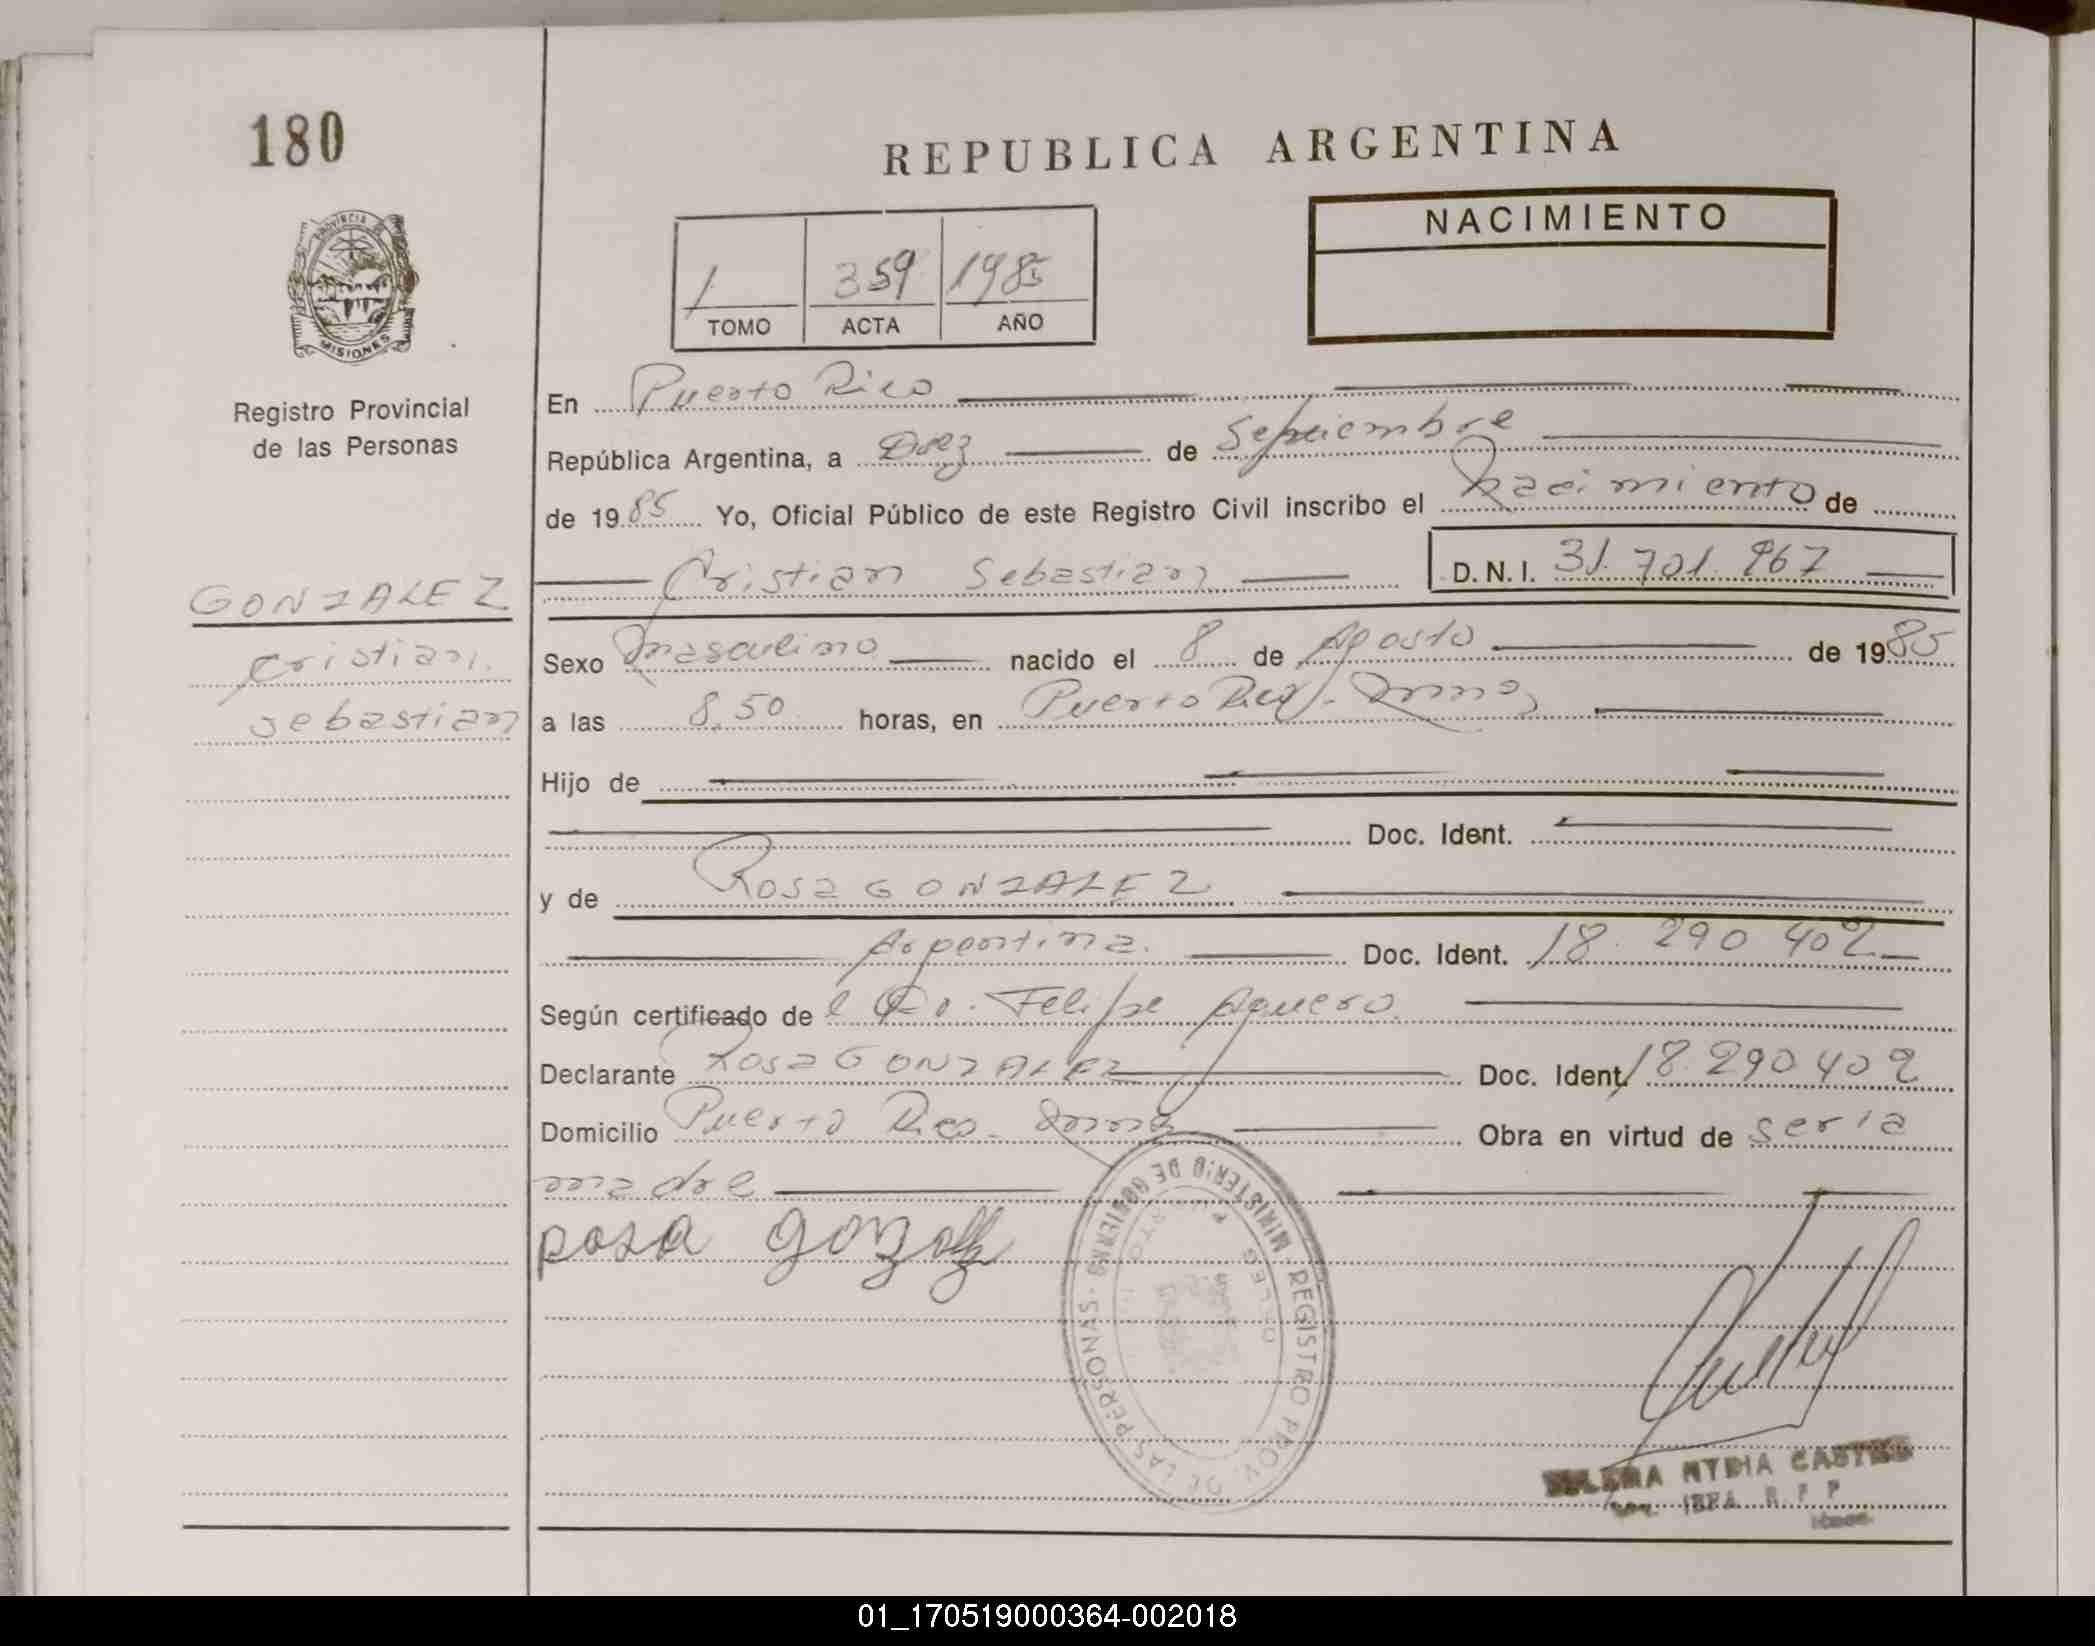 180
REPUBLICA ARGENTINA
NACIMIENTO
1 359 1985
TOMO ACTA AÑO
PROVINCIA
MISIONES
Registro Provincial
de las Personas
GONZALEZ
Cristian
Sebastian
En Puerto Rico
República Argentina, a Diez de Septiembre
de 1985 Yo, Oficial Público de este Registro Civil inscribo el nacimiento de
Cristian Sebastian D.N.I. 31.701.967
Sexo masculino nacido el 8 de Agosto de 1985
a las 8,50 horas, en Puerto Rico
Hijo de
Doc. Ident.
y de Rosa GONZALEZ
Argentina. Doc. Ident. 18.290.402
Según certificado de l Felipe Aguero.
Declarante Rosa GONZALEZ Doc. Ident. 18.290.402
Domicilio Puerto Rico Obra en virtud de ser la
madre
MINISTERIO DE GOBIERNO · REGISTRO PROV. DE LAS PERSONAS
rosa gonzalez
NYDIA CASTRO
01_170519000364-002018